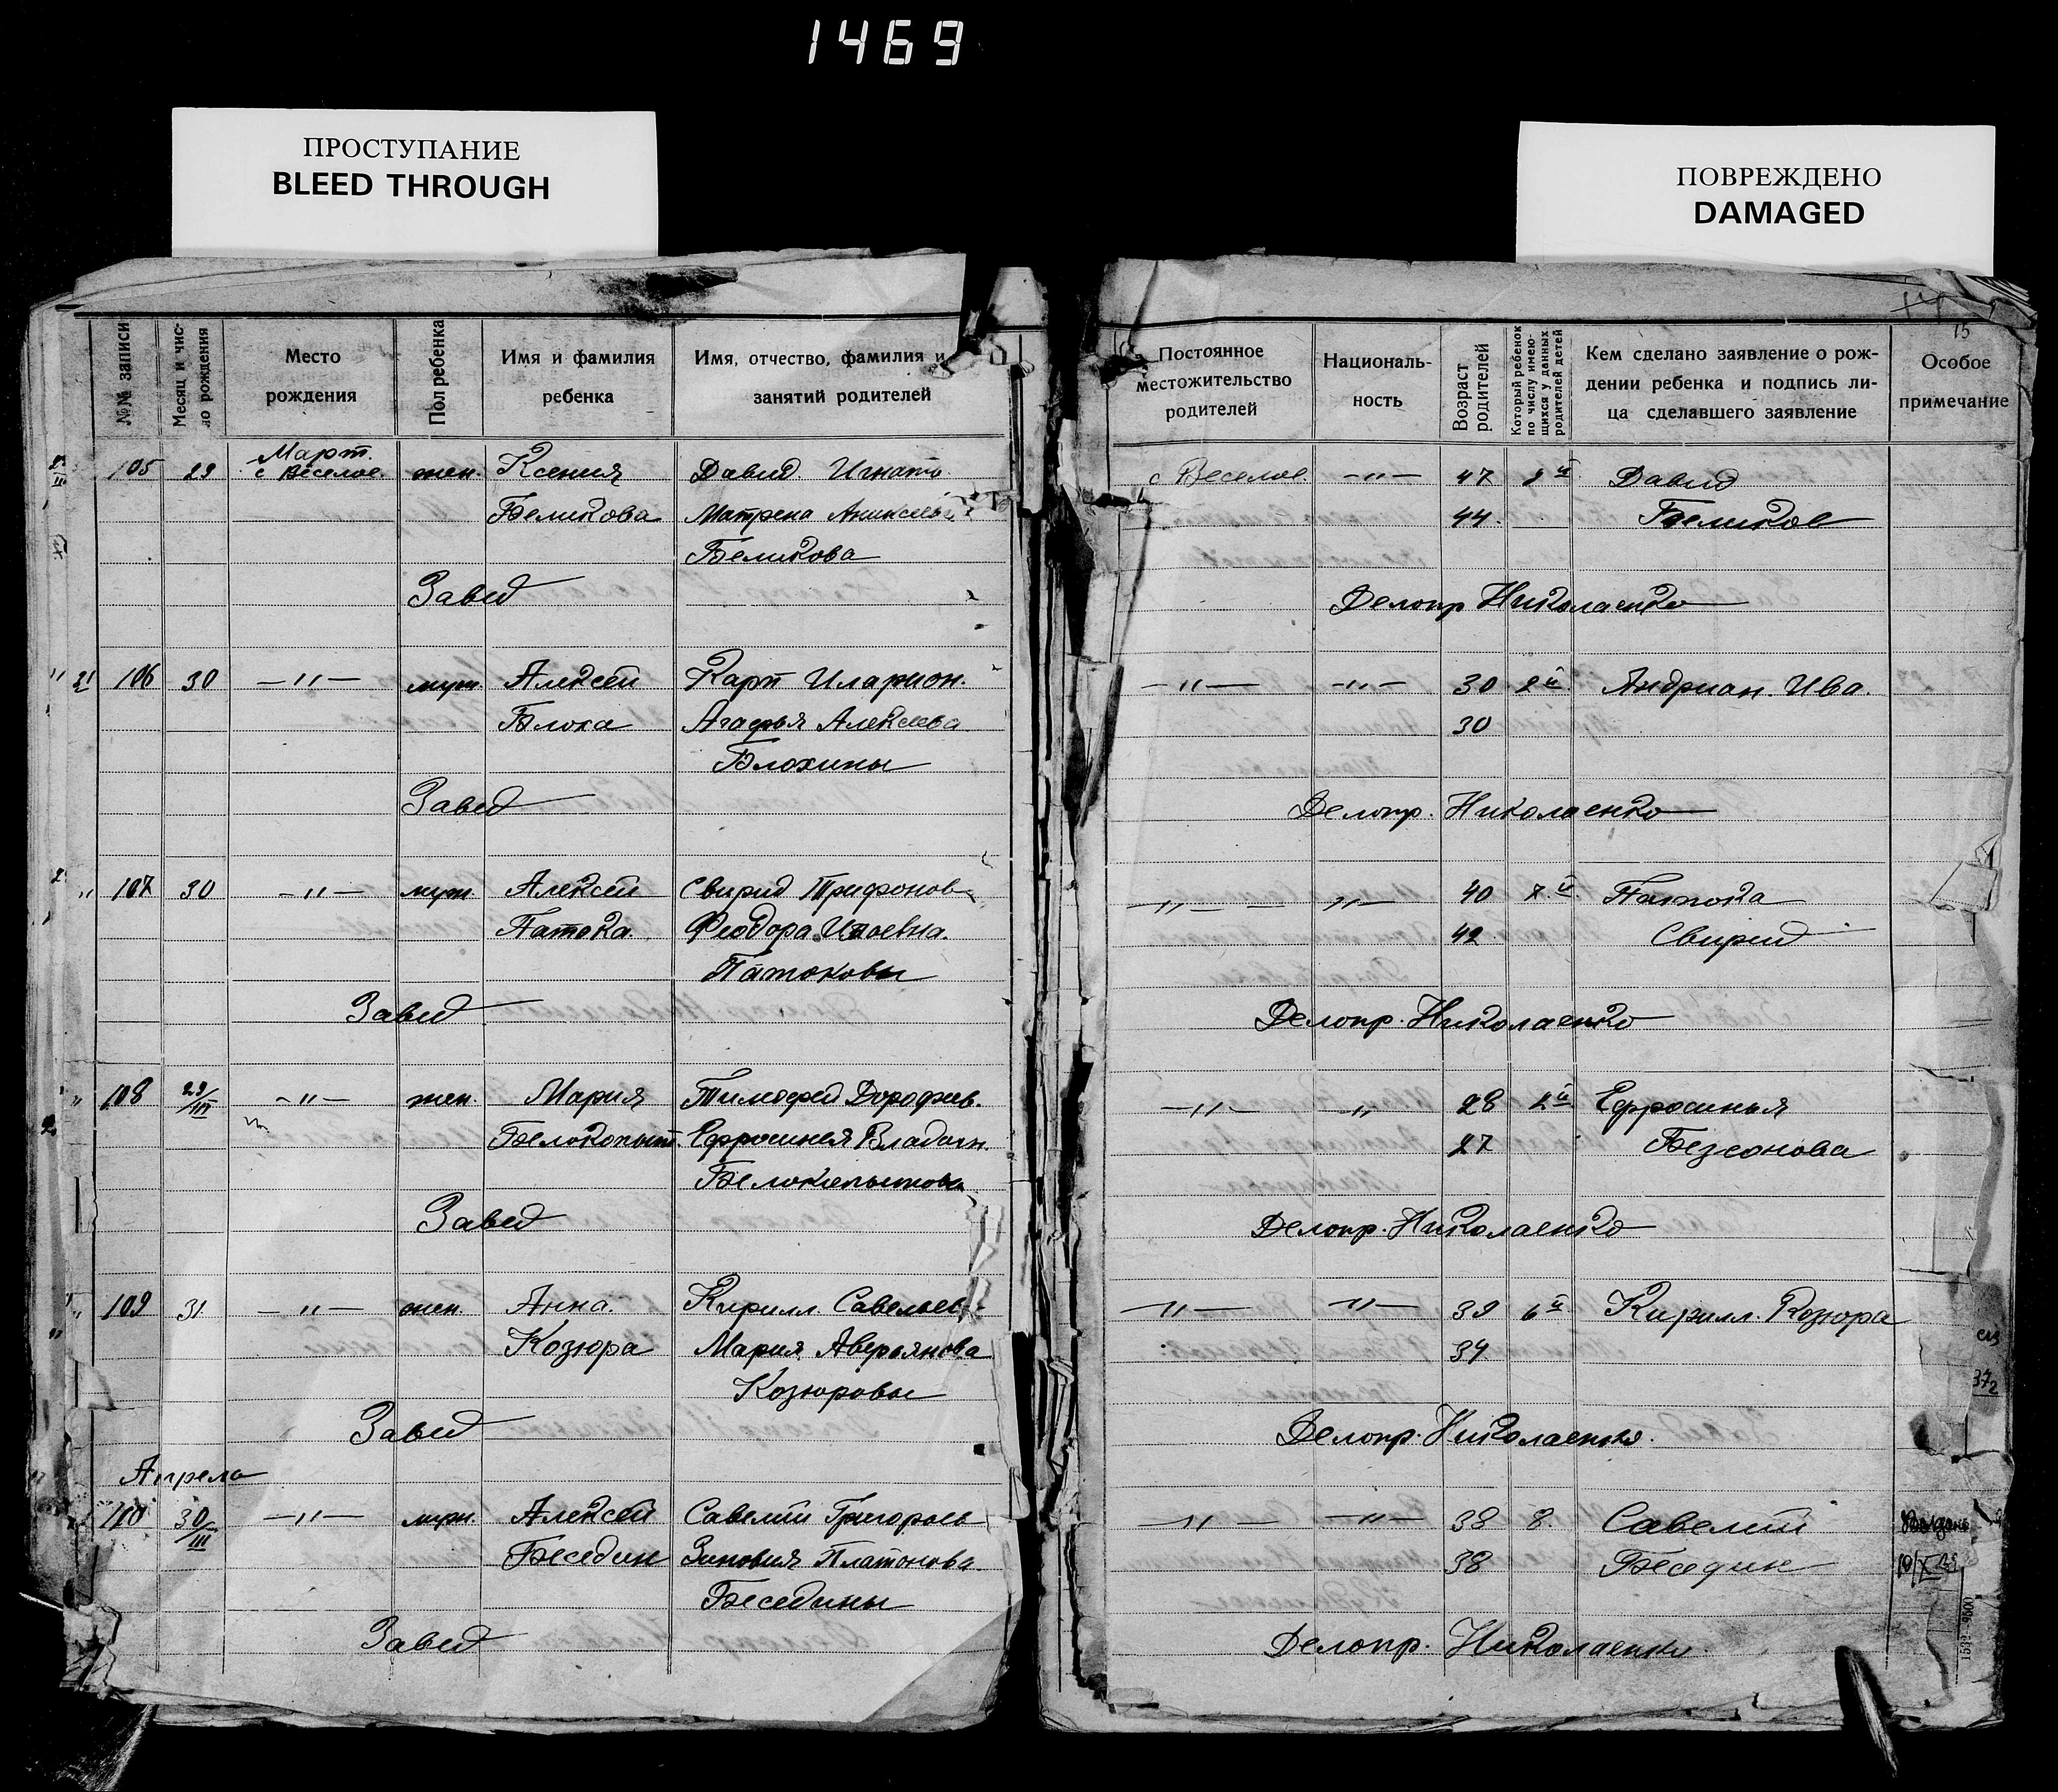 1469
ПРОСТУПАНИЕ
BLEED THROUGH
ПОВРЕЖДЕНО
DAMAGED
15
№№ записи
Месяц и число рождения
Место рождения
Пол ребенка
Имя и фамилия ребенка
Имя, отчество, фамилия и занятий родителей
Постоянное местожительство родителей
Националь-ность
Возраст родителей
Который ребенок по числу имею-щихся у данных родителей детей
Кем сделано заявление о рож-дении ребенка и подпись ли-ца сделавшего заявление
Особое примечание
Март.
105 29 с Веселое. жен. Ксения Давид Игнато с Веселое. —"— 47 Давид
Беликова Матрена 44. Беликов
Беликова
Завед Делопр Николаенко
106 30 —"— муж. Алексей Карп Иларион. —"— —"— 30 2й Андриан. Ива.
Блоха Агафья Алексева 30
Блохины
Завед Делопр. Николаенко
107 30 —"— муж. Алексей Свирид Трифонов —"— —"— 40 7.й Патока
Патока. Феодора 42 Свирид
Патоковы
Завед Делопр. Николаенко
108 29/III —"— жен. Мария Тимофей Дорофев. —"— —"— 28 2й Ефросинья
Белокопыт. Ефросинея 27 Безсонова
Белокопытовы
Завед Делопр. Николаенко
109 31. —"— жен. Анна. Кирилл Савельев —"— —"— 39 6й Кирилл. Козюра
Козюра Мария Аверьянова 34
Козюровы
Завед Делопр. Николаенко.
Апреля
110 30/III —"— муж. Алексей Савелий Григорьев —"— —"— 38 8. Савелий
Беседин Зиновия Платонова. 38 Беседин
Беседины
Завед Делопр. Николаенко.